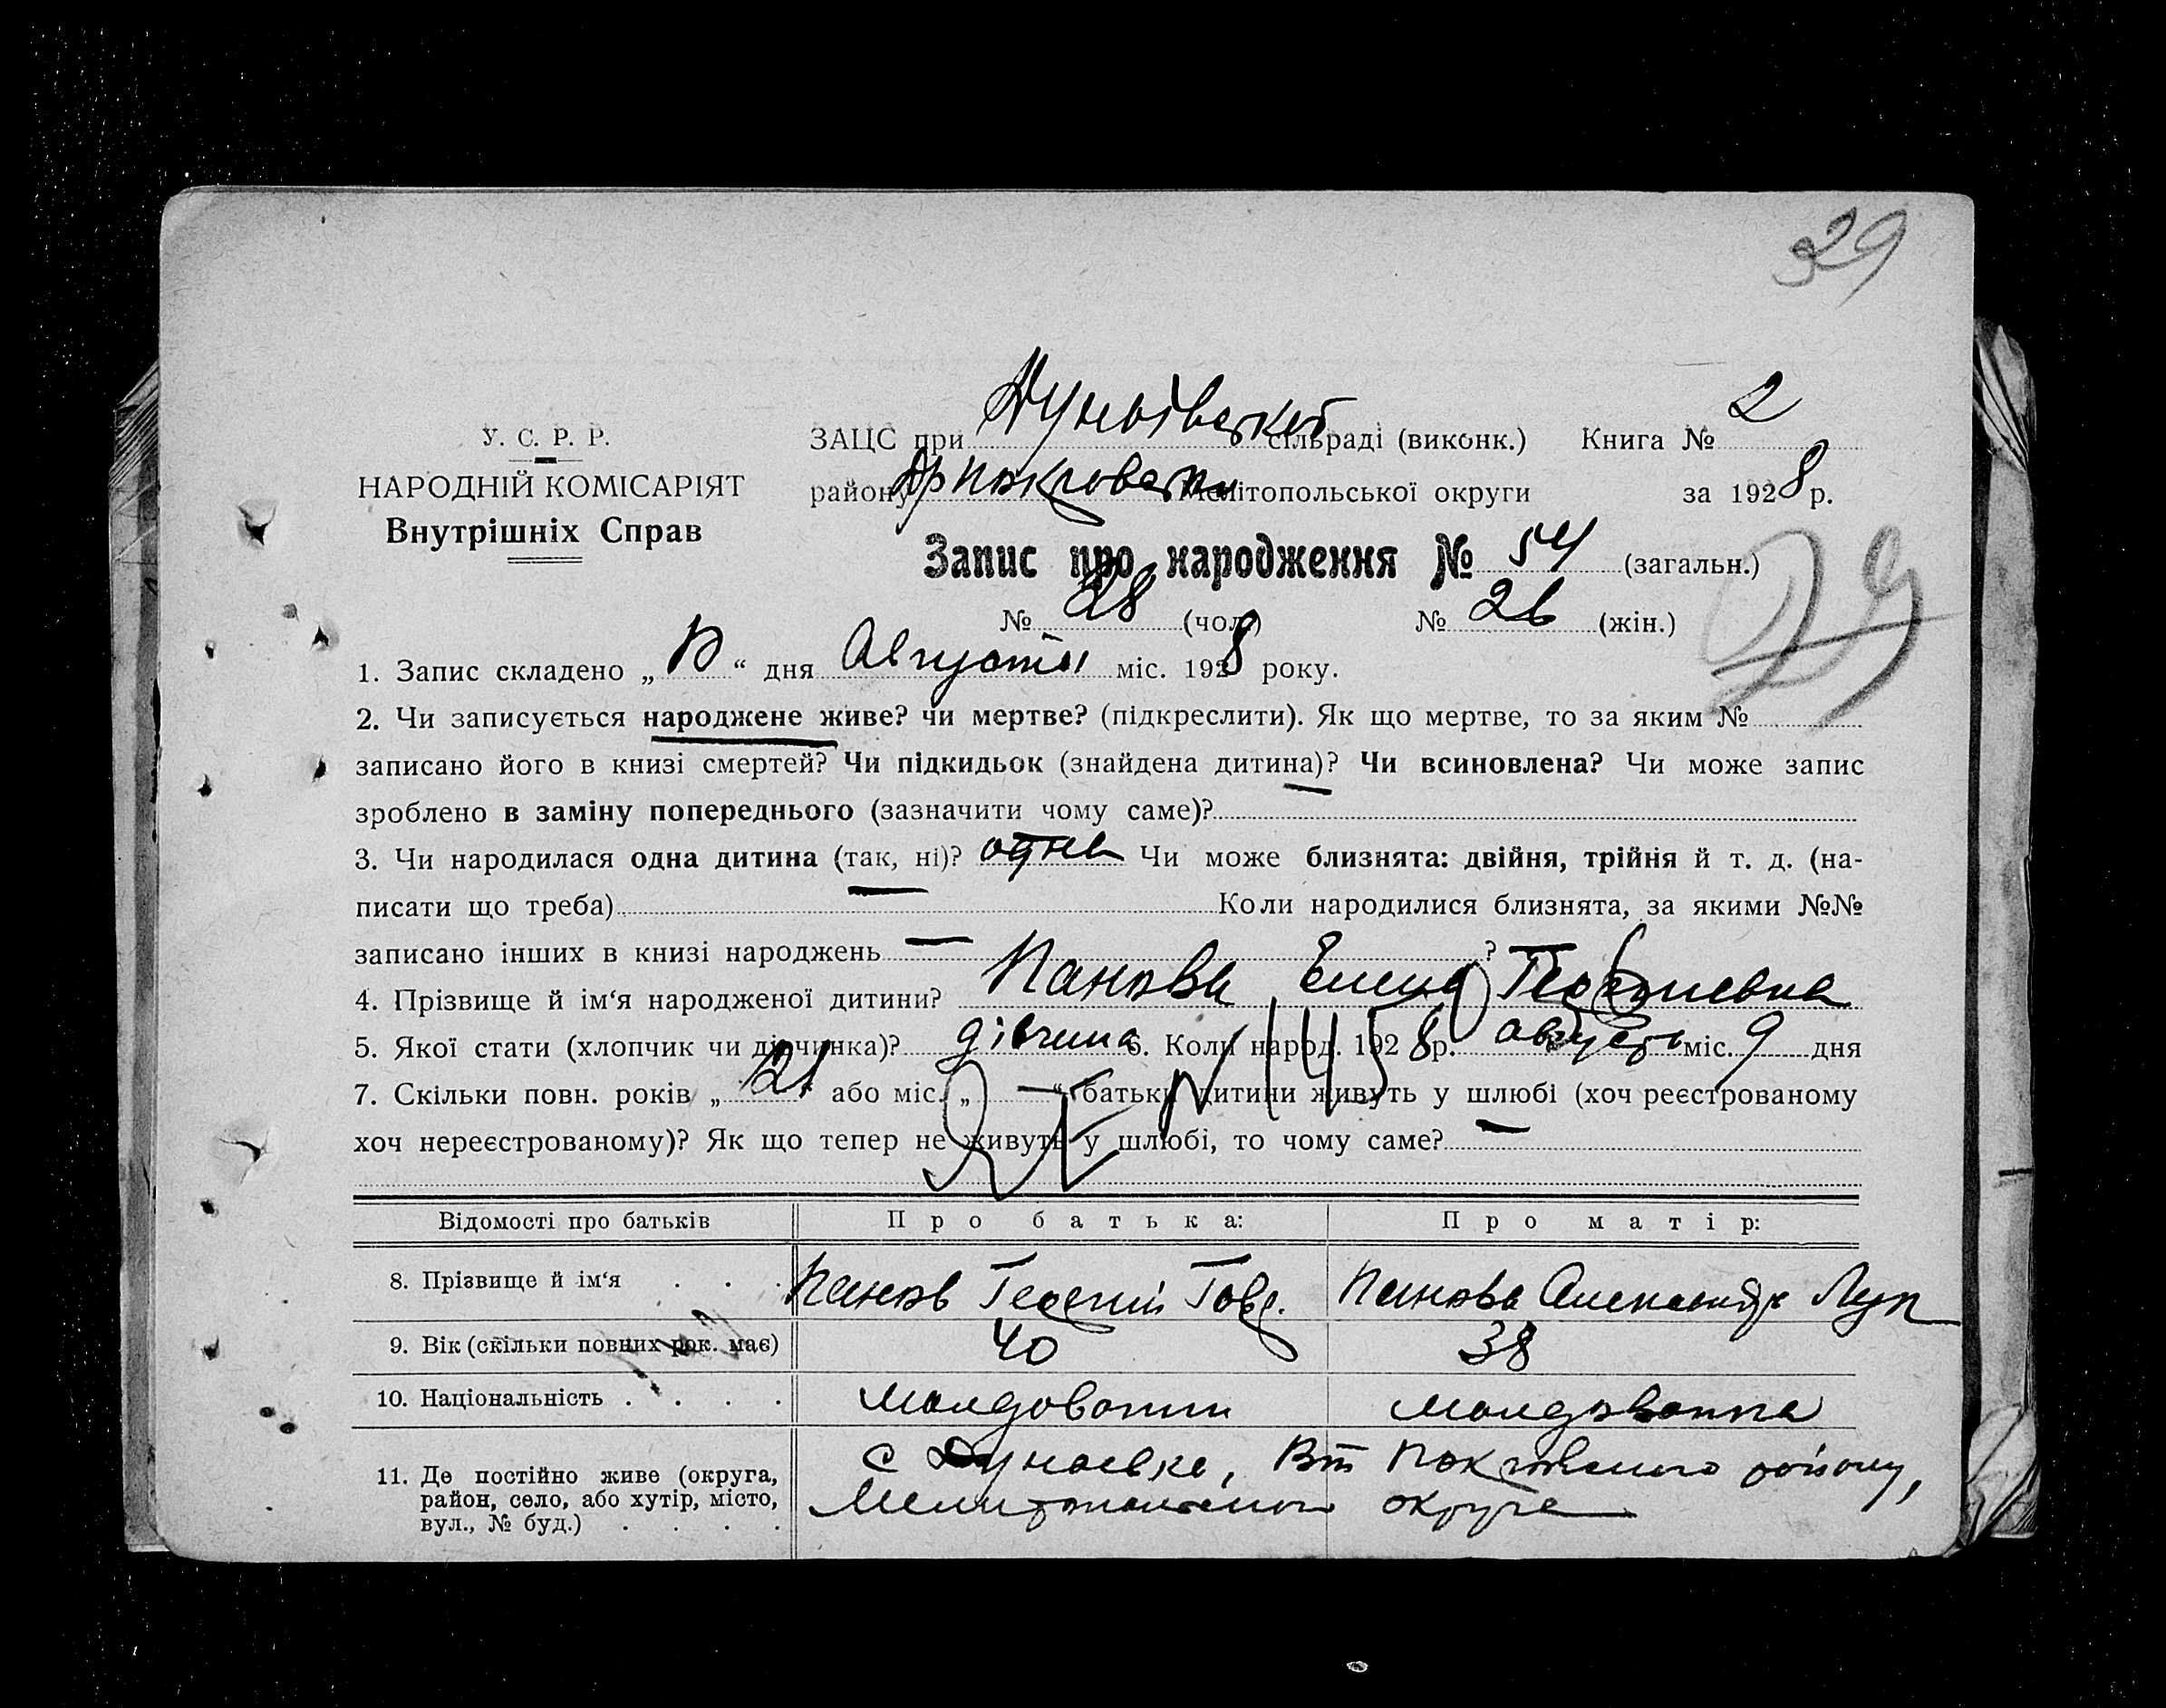 39
У. С. Р. Р.
НАРОДНІЙ КОМІСАРІЯТ
Внутрішніх Справ
ЗАЦС при сільраді (виконк.) Книга № 2
району Мелітопольської округи за 1928 р.
Запис про народження № 54 (загальн.)
№ 28 (чол.) № 26 (жін.)
29
1. Запис складено „ “ дня Августа міс. 1928 року.
2. Чи записується народжене живе? чи мертве? (підкреслити). Як що мертве, то за яким №
записано його в книзі смертей? Чи підкидьок (знайдена дитина)? Чи всиновлена? Чи може запис
зроблено в заміну попереднього (зазначити чому саме)?
3. Чи народилася одна дитина (так, ні)? одна Чи може близнята: двійня, трійня й т. д. (на-
писати що треба) — Коли народилися близнята, за якими №№
записано інших в книзі народжень — ?
4. Прізвище й ім‘я народженої дитини? Панова Елена Георгиевна
5. Якої стати (хлопчик чи дівчинка)? дівчина 6. Коли народ. 1928 р. август міс. 9 дня
7. Скільки повн. років „ 21 “ або міс. „ — “ батьки дитини живуть у шлюбі (хоч реєстрованому
хоч нереєстрованому)? Як що тепер не живуть у шлюбі, то чому саме? —
Відомості про батьків Про батька: Про матір:
8. Прізвище й ім‘я . . . Панов Георгий Панова Александра Луп
9. Вік (скільки повних рок. має) 40 38
10. Національність . . . . молдованин молдованка
11. Де постійно живе (округа, с Дунаевке, Покровского району,
район, село, або хутір, місто, Мелитопольськой округе
вул., № буд.) . . . .